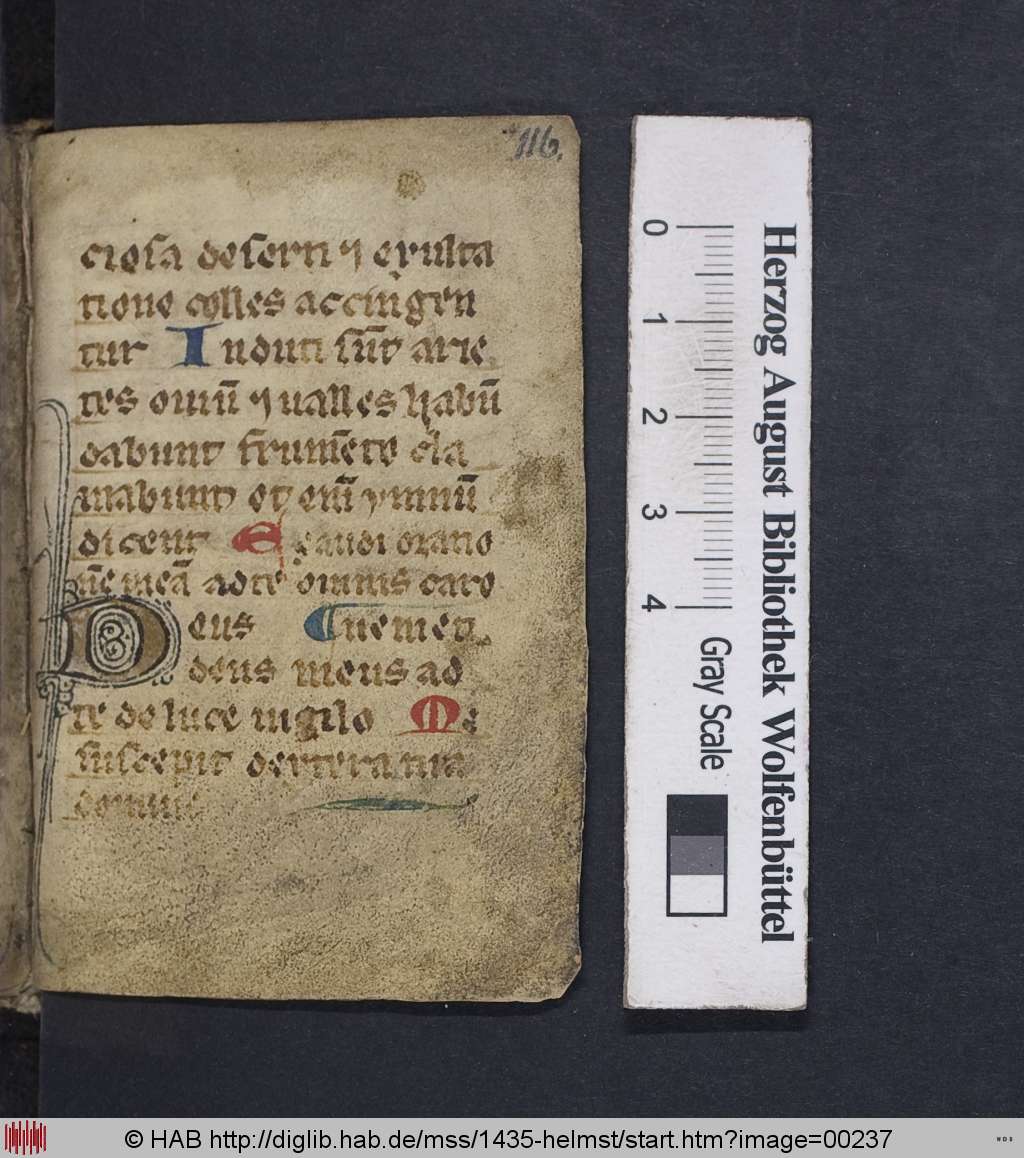 116.
ciosa deserti ⁊ exulta
tione colles accingen
tur Induti sūt arie
tes ouiū ⁊ ualles habū
dabunt frumēto cla
mabunt et enī ymnū
dicent Exaudi oratio
nē meā ad te omnis caro
Deus venien
deus meus ad
te de luce uigilo Me
suscepit dextera tua
domine
0 1 2 3 4
Gray Scale
Herzog August Bibliothek Wolfenbüttel
© HAB http://diglib.hab.de/mss/1435-helmst/start.htm?image=00237